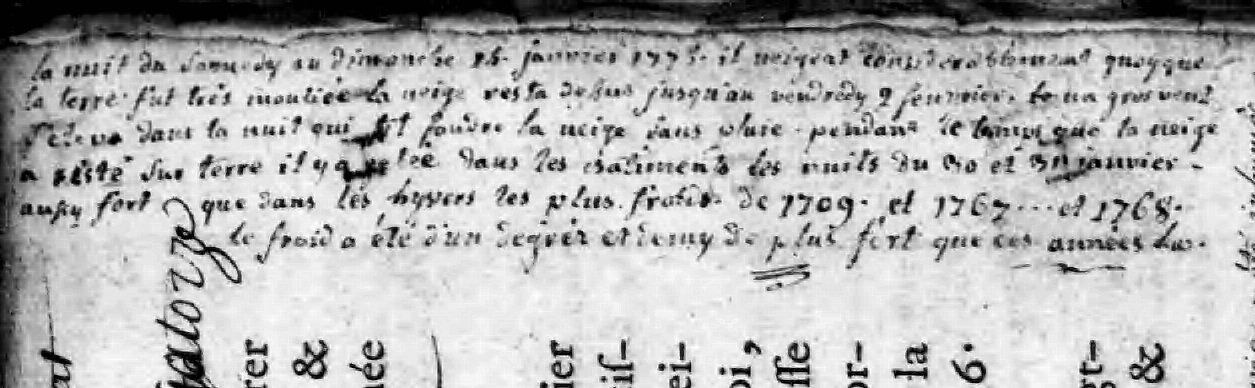 la nuit du Samedy au dimanche 15. janvier 1775. il neigeat considerablement quoyque
la terre fut très mouliée la neige resta dessus jusqu'au vendredy 9 feuvrier. un gros vent
s'eleva dans la nuit qui fit fondre la neige sans pluie. pendant le temps que la neige
a resté sur terre il y a gelée dans les batiments les nuits du 30 et 31 janvier.
aussy fort que dans les hyvers les plus froids de 1709. et 1767... et 1768.
le froid a été d'un degréz et demy de plus fort que ces années la.
atorze
rer
&
née
ier
if-
ei-
oi,
ffe
or-
la
6.
rt-
&